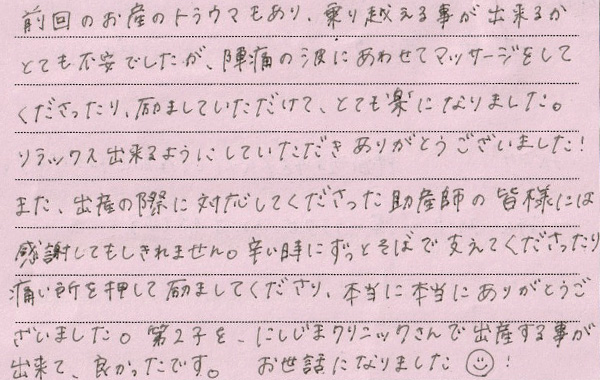 前回のお産のトラウマもあり、乗り越える事が出来るか
とても不安でしたが、陣痛の波にあわせてマッサージをして
くださったり、励ましていただけて、とても楽になりました。
リラックス出来るようにしていただきありがとうございました！
また、出産の際に対応してくださった助産師の皆様には
感謝してもしきれません。辛い時にずっとそばで支えてくださったり
痛い所を押して励ましてくださり、本当に本当にありがとうご
ざいました。第2子を、にしじまクリニックさんで出産する事が
出来て、良かったです。 お世話になりました ☺！